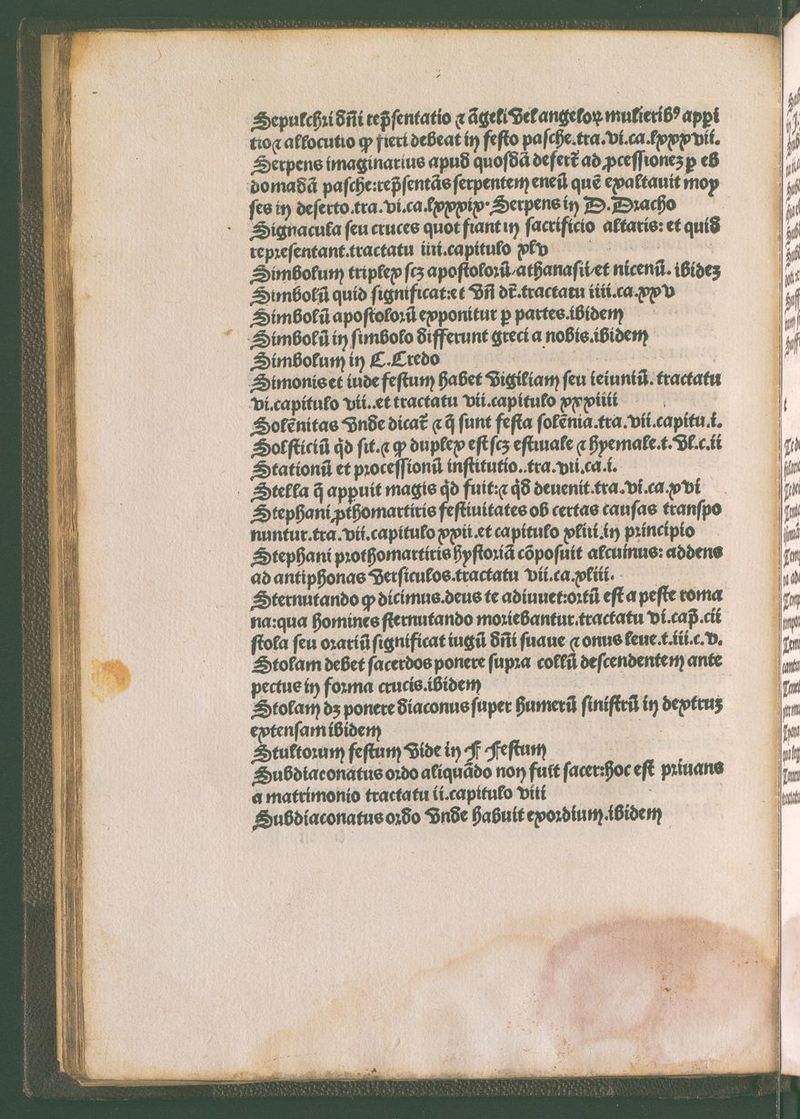 Sepulchri dñi rep̃sentatio ⁊ ãgeli vel angeloꝝ mulieribꝰ appi
tio⁊ allocutio ꝙ fieri debeat in festo pasche.tra.vi.ca.lxxxvii.
Serpens imaginarius apud quosdã defert̃ ad ꝓcessionez ꝑ eb
domadã pasche:rep̃sentãs serpentem eneũ quẽ exaltauit moy
ses in deserto.tra.vi.ca.lxxxix. Serpens in D.Dracho
Signacula seu cruces quot fiant in sacrificio altaris: et quid
representant.tractatu iiii.capitulo xlv
Simbolum triplex scꝫ apostolorũ/athanasii/et nicenũ. ibidez
Simbolũ quid significat:et vñ dr̃.tractatu iiii.ca.xxv
Simbolũ apostolorũ exponitur ꝑ partes.ibidem
Simbolũ in simbolo differunt greci a nobis.ibidem
Simbolum in C.Credo
Simonis et iude festum habet vigiliam seu ieiuniũ. tractatu
vi.capitulo vii..et tractatu vii.capitulo xxxiiii
Solẽnitas vnde dicat̃ ⁊ q̃ sunt festa solẽnia.tra.vii.capitu.i.
Solsticiũ qd̃ sit.⁊ ꝙ duplex est scꝫ estiuale ⁊ hyemale.t.vl.c.ii
Stationũ et processionũ institutio..tra.vii.ca.i.
Stella q̃ appuit magis qd̃ fuit:⁊ qd̃ deuenit.tra.vi.ca.xvi
Stephani ꝓthomartiris festiuitates ob certas causas transpo
nuntur.tra.vii.capitulo xxii.et capitulo xliii.in principio
Stephani prothomartiris hystoriã cõposuit alcuinus: addens
ad antiphonas versiculos.tractatu vii.ca.xliii.
Sternutando ꝙ dicimus.deus te adiuuet:ortũ est a peste roma
na:qua homines sternutando moriebantur.tractatu vi.cap̃.cii
stola seu orariũ significat iugũ dñi suaue ⁊ onus leue.t.iii.c.v.
Stolam debet sacerdos ponere supra collũ descendentem ante
pectus in forma crucis.ibidem
Stolam dꝫ ponere diaconus super humerũ sinistrũ in dextruz
extensam ibidem
Stultorum festum vide in F Festum
Subdiaconatus ordo aliquãdo non fuit sacer:hoc est priuans
a matrimonio tractatu ii.capitulo viii
Subdiaconatus ordo vnde habuit exordium.ibidem